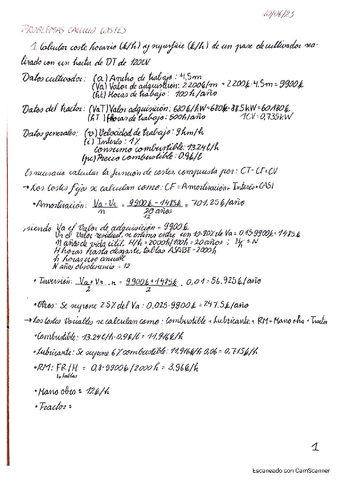 PROBLEMAS CALCULO COSTES
1. Calcular coste horario (€/h) y superficie (€/h) de un pase de cultivador rea-
lizado con un tractor de DT de 120CV
Datos cultivador: (a) Ancho de trabajo: 4,5m
(Va) Valor de adquisición: 2.200€/m → 2200€·4,5m=9900€
(ht) Horas de trabajo: 100h/año
Datos del tractor: (VaT) Valor adquisición: 680€/kW
(hT) Horas de trabajo: 500h/año 1CV=0,735kW
Datos generales: (v) Velocidad de trabajo: 9km/h
(i) Interés: 1%
Consumo combustible: 13.24€/h
(pc) Precio combustible: 0.9€/l
Es necesario calcular la función de costes compuesta por: CT=CF+CV
→ Los costes fijos se calculan como: CF=Amortización+Interés+CASI
• Amortización: Va-Vr / n = 9900€-1485€ / 12 años = 701.25€/año
siendo Va el Valor de adquisición = 9900€
h horas uso anual
N año obsolescencia = 12
• Inversión: Va+Vr / 2 · i = 9900€+1485€ / 2 · 0,01=56,925€/año
• Otros: Se supone 2.5% del Va: 0,025·9900€=247.5€/año
→ Los costes Variables se calculan como: Combustible+Lubricante+RM+Mano obra+Tractor
• Lubricante: Se supone 6% combustible: 11,916€/h·0,06=0,715€/h
• RM: FR/H = 0,8·9900€/2000h=3.96€/h
→ tablas
• Mano obra = 12€/h
• Tractor =
1
Escaneado con CamScanner